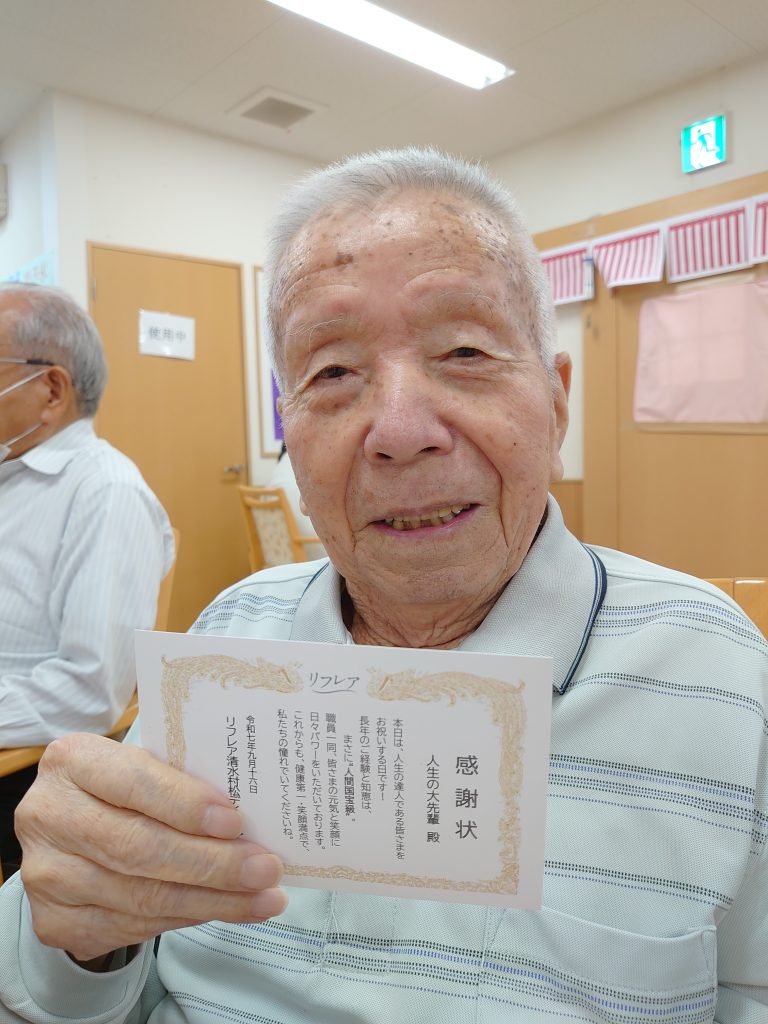 使用中
リフレア
感謝状
人生の大先輩 殿
本日は、人生の達人である皆さまを
お祝いする日です！
長年のご経験と知恵は、
まさに“人間国宝級”。
職員一同、皆さまの元気と笑顔に
日々パワーをいただいております。
これからも、健康第一・笑顔満点で、
私たちの憧れでいてくださいね。
令和七年九月十六日
リフレア清水村松デ